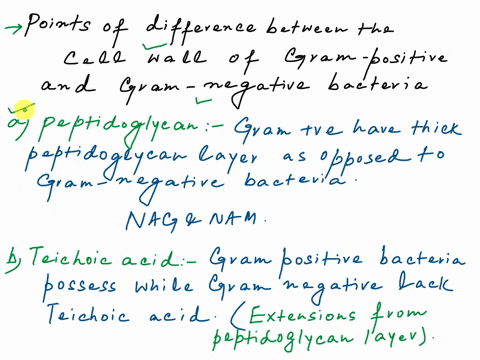 → Points of difference between the
cell wall of Gram-positive
and Gram-negative bacteria
a) Peptidoglycan:- Gram +ve have thick
peptidoglycan layer as opposed to
Gram-negative bacteria.
NAG & NAM.
b) Teichoic acid:- Gram positive bacteria
possess while Gram negative lack
Teichoic acid. (Extensions from
peptidoglycan layer).